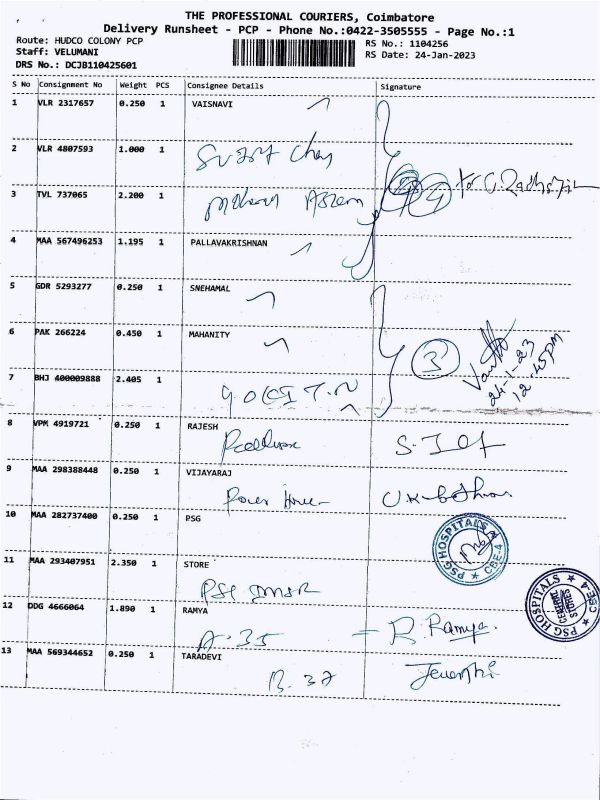 THE PROFESSIONAL COURIERS, Coimbatore
Delivery Runsheet - PCP - Phone No.:0422-3505555 - Page No.:1
Route: HUDCO COLONY PCP
Staff: VELUMANI
DRS No.: DCJB110425601
RS No.: 1104256
RS Date: 24-Jan-2023
S No Consignment No Weight PCS Consignee Details Signature
1 VLR 2317657 0.250 1 VAISNAVI
2 VLR 4807593 1.000 1
3 TVL 737065 2.200 1
4 MAA 567496253 1.195 1 PALLAVAKRISHNAN
4
5 GDR 5293277 0.250 1 SNEHAMAL
6 PAK 266224 0.450 1 MAHANITY
3
24-1-23
12.45PM
7 BHJ 400009888 2.405 1
8 VPM 4919721 0.250 1 RAJESH
9 MAA 298388448 0.250 1 VIJAYARAJ
Power House
10 MAA 282737400 0.250 1 PSG
PSG HOSPITALS CBE-4
11 MAA 293407951 2.350 1 STORE
PSG IMSR
PSG HOSPITALS CBE-4
CENTRAL STORES
12 DDG 4666064 1.890 1 RAMYA
A-35 R. Ramya
13 MAA 569344652 0.250 1 TARADEVI
B.37